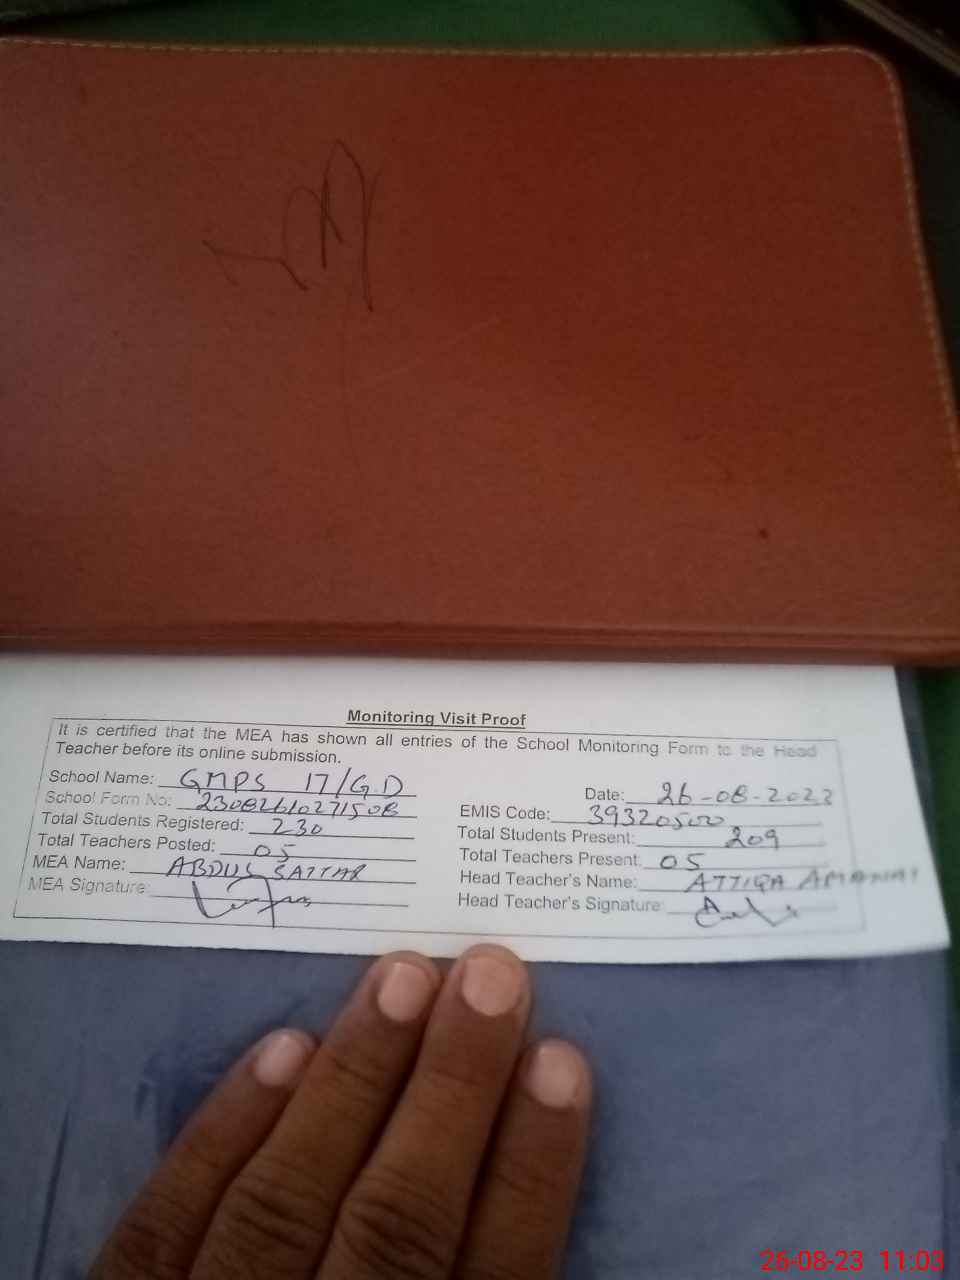 Monitoring Visit Proof
It is certified that the MEA has shown all entries of the School Monitoring Form to the Head
Teacher before its online submission.
School Name: GMPS 17/G.D
Date: 26-08-2023
School Form No: 2308261027150B
EMIS Code: 39320500
Total Students Registered: 230
Total Students Present: 209
Total Teachers Posted: 05
Total Teachers Present: 05
MEA Name: ABDUS SATTAR
Head Teacher's Name: ATTIQA AMANAT
MEA Signature:
Head Teacher's Signature:
26-08-23 11:03